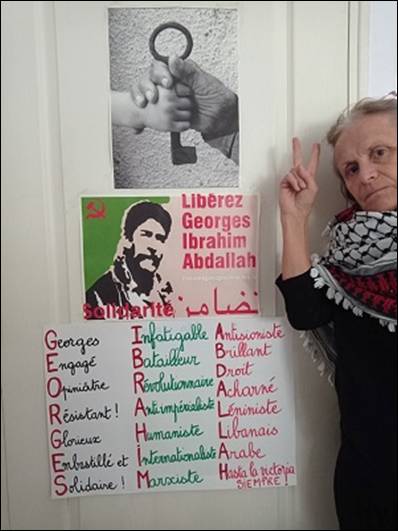 Libérez
Georges
Ibrahim
Abdallah
Solidarité تضامن
Georges
Engagé
Opiniâtre
Résistant !
Glorieux
Embastillé et
Solidaire !
Infatigable
Batailleur
Révolutionnaire
Antiimpérialiste
Humaniste
Internationaliste
Marxiste
Antisioniste
Brillant
Droit
Acharné
Léniniste
Libanais
Arabe
Hasta la victoria
SIEMPRE !